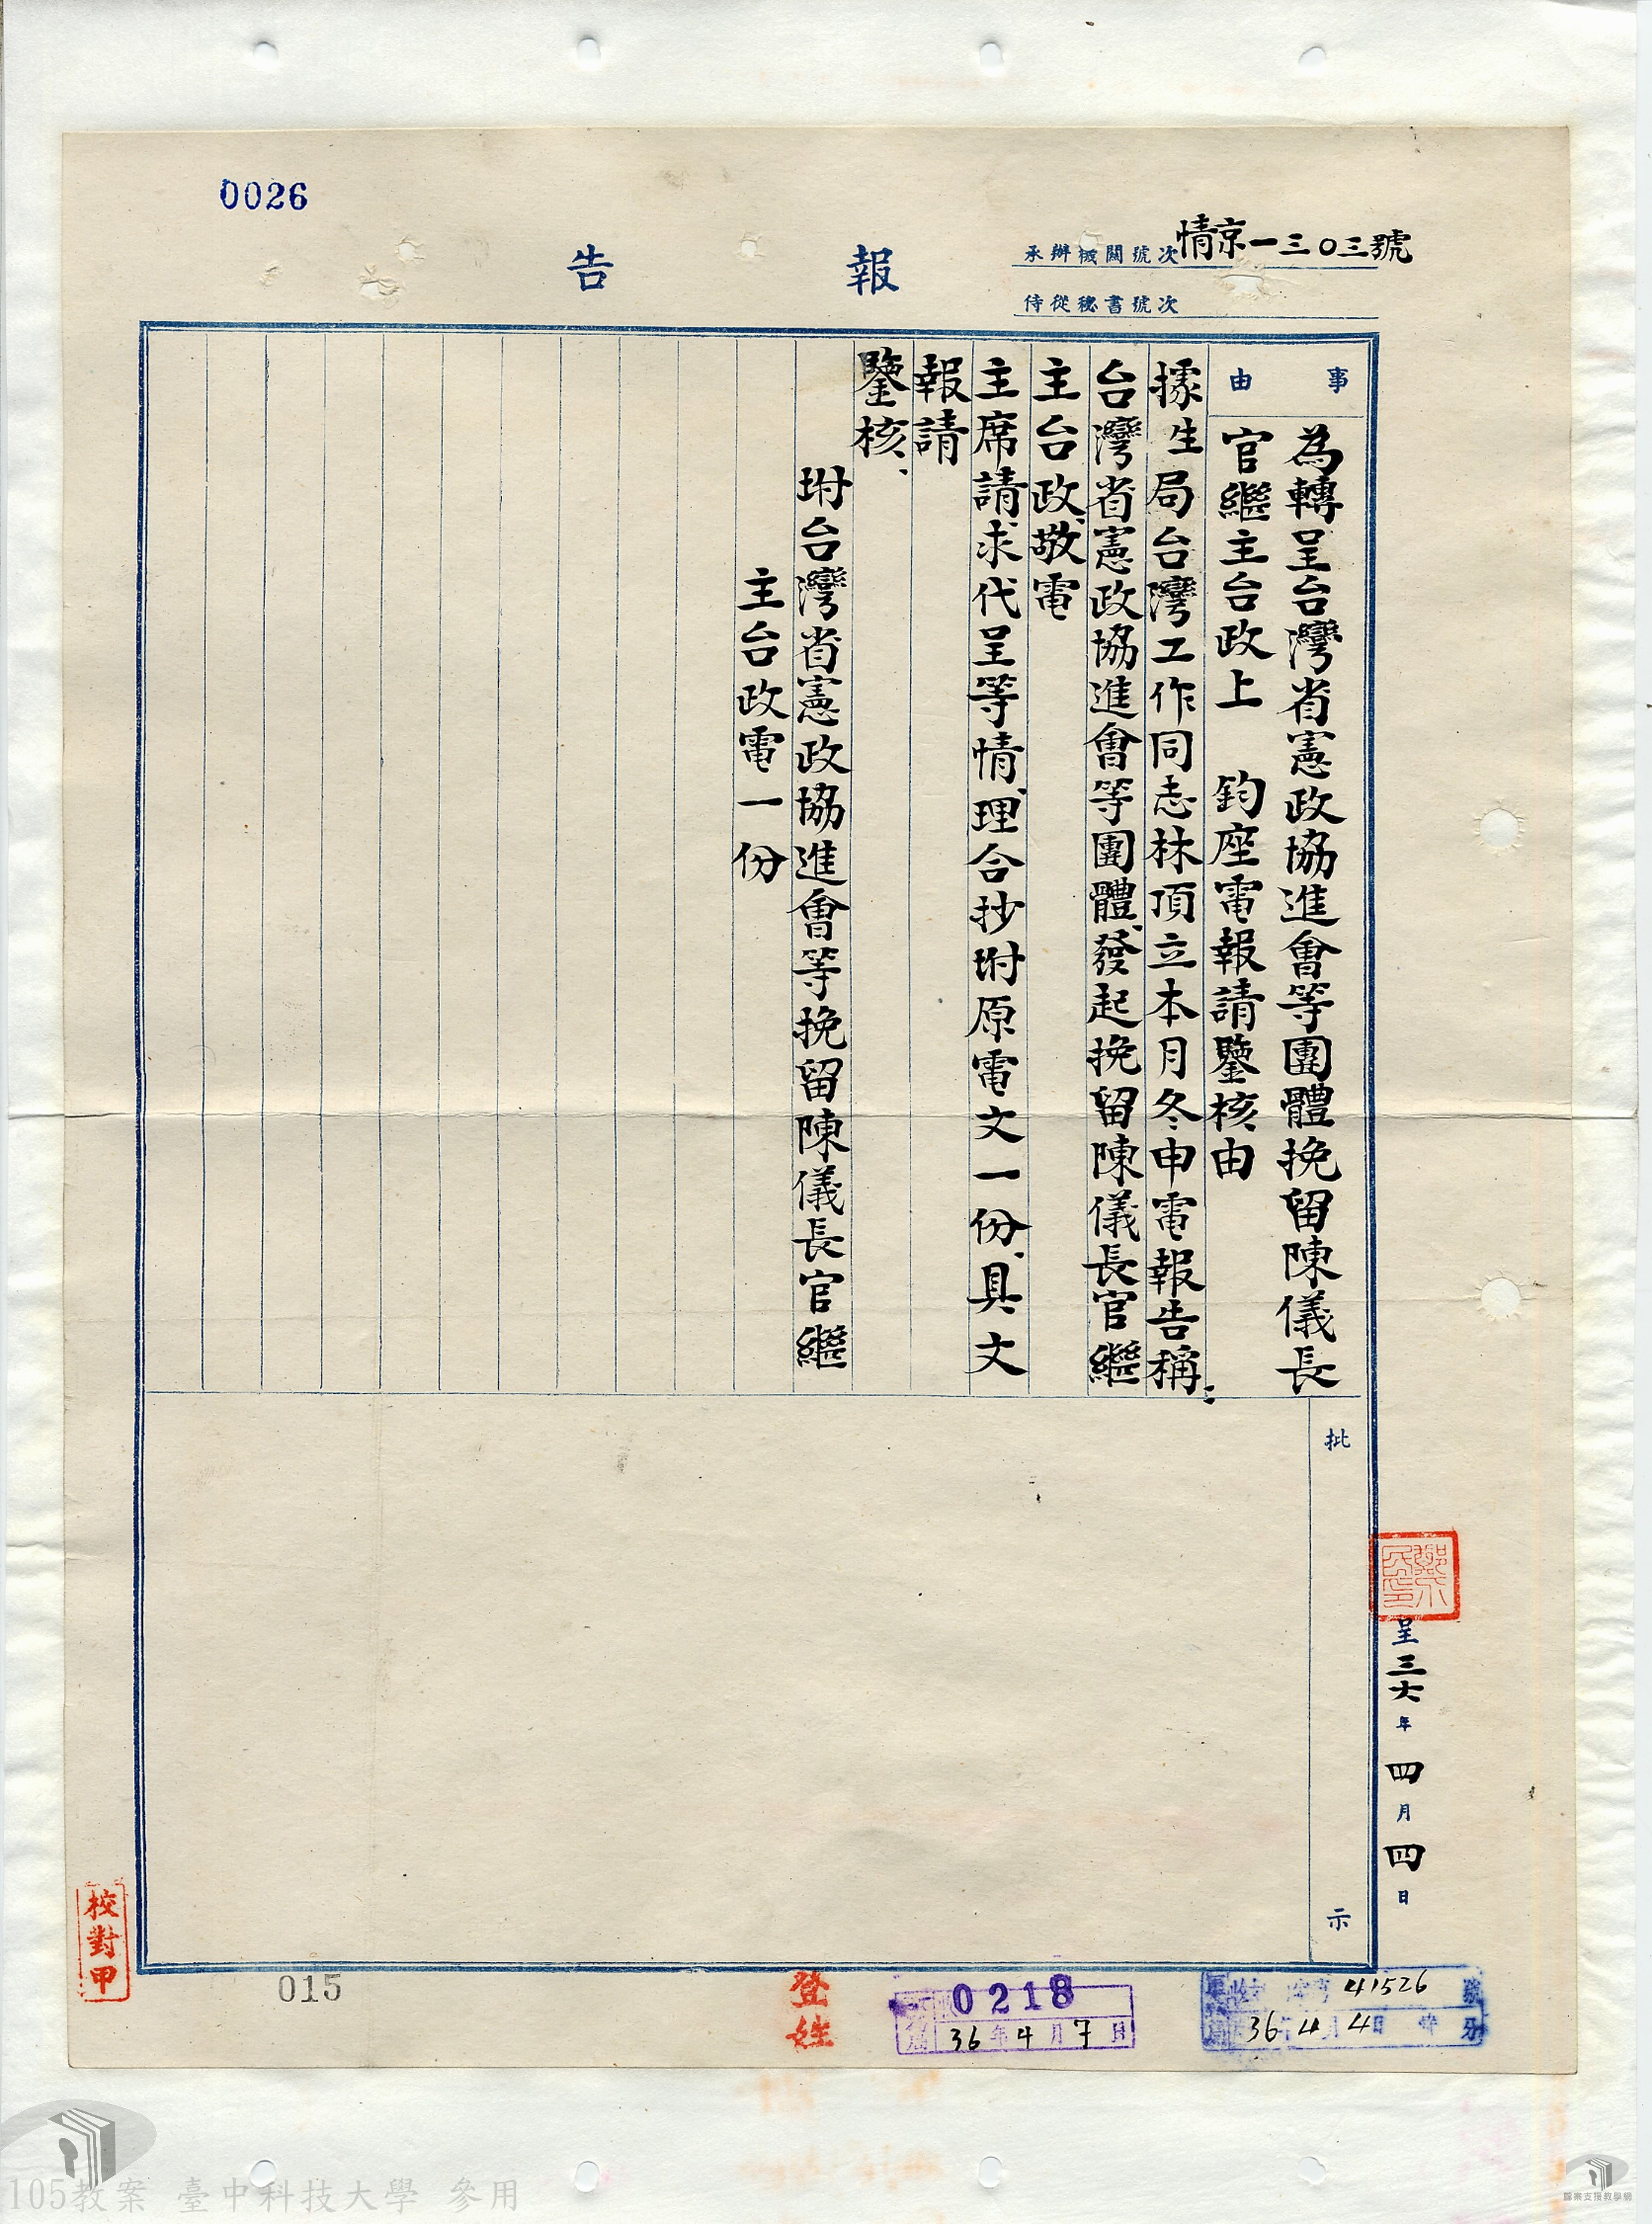 0026
報告
承辦機關號次情京一三〇三號
侍從秘書號次
事由
為轉呈台灣省憲政協進會等團體挽留陳儀長
官繼主台政上 鈞座電報請鑒核由
據生局台灣工作同志林頂立本月冬申電報告稱：
台灣省憲政協進會等團體、發起挽留陳儀長官繼
主台政、敬電
主席請求代呈等情、理合抄附原電文一份、具文
報請
鑒核、
附台灣省憲政協進會等挽留陳儀長官繼
主台政電一份
批示
呈三六年四月四日
校對甲
015
登姓
0218
36年4月7日
41526號
36 4月4日
105教案 臺中科技大學 參用
檔案支援教學網